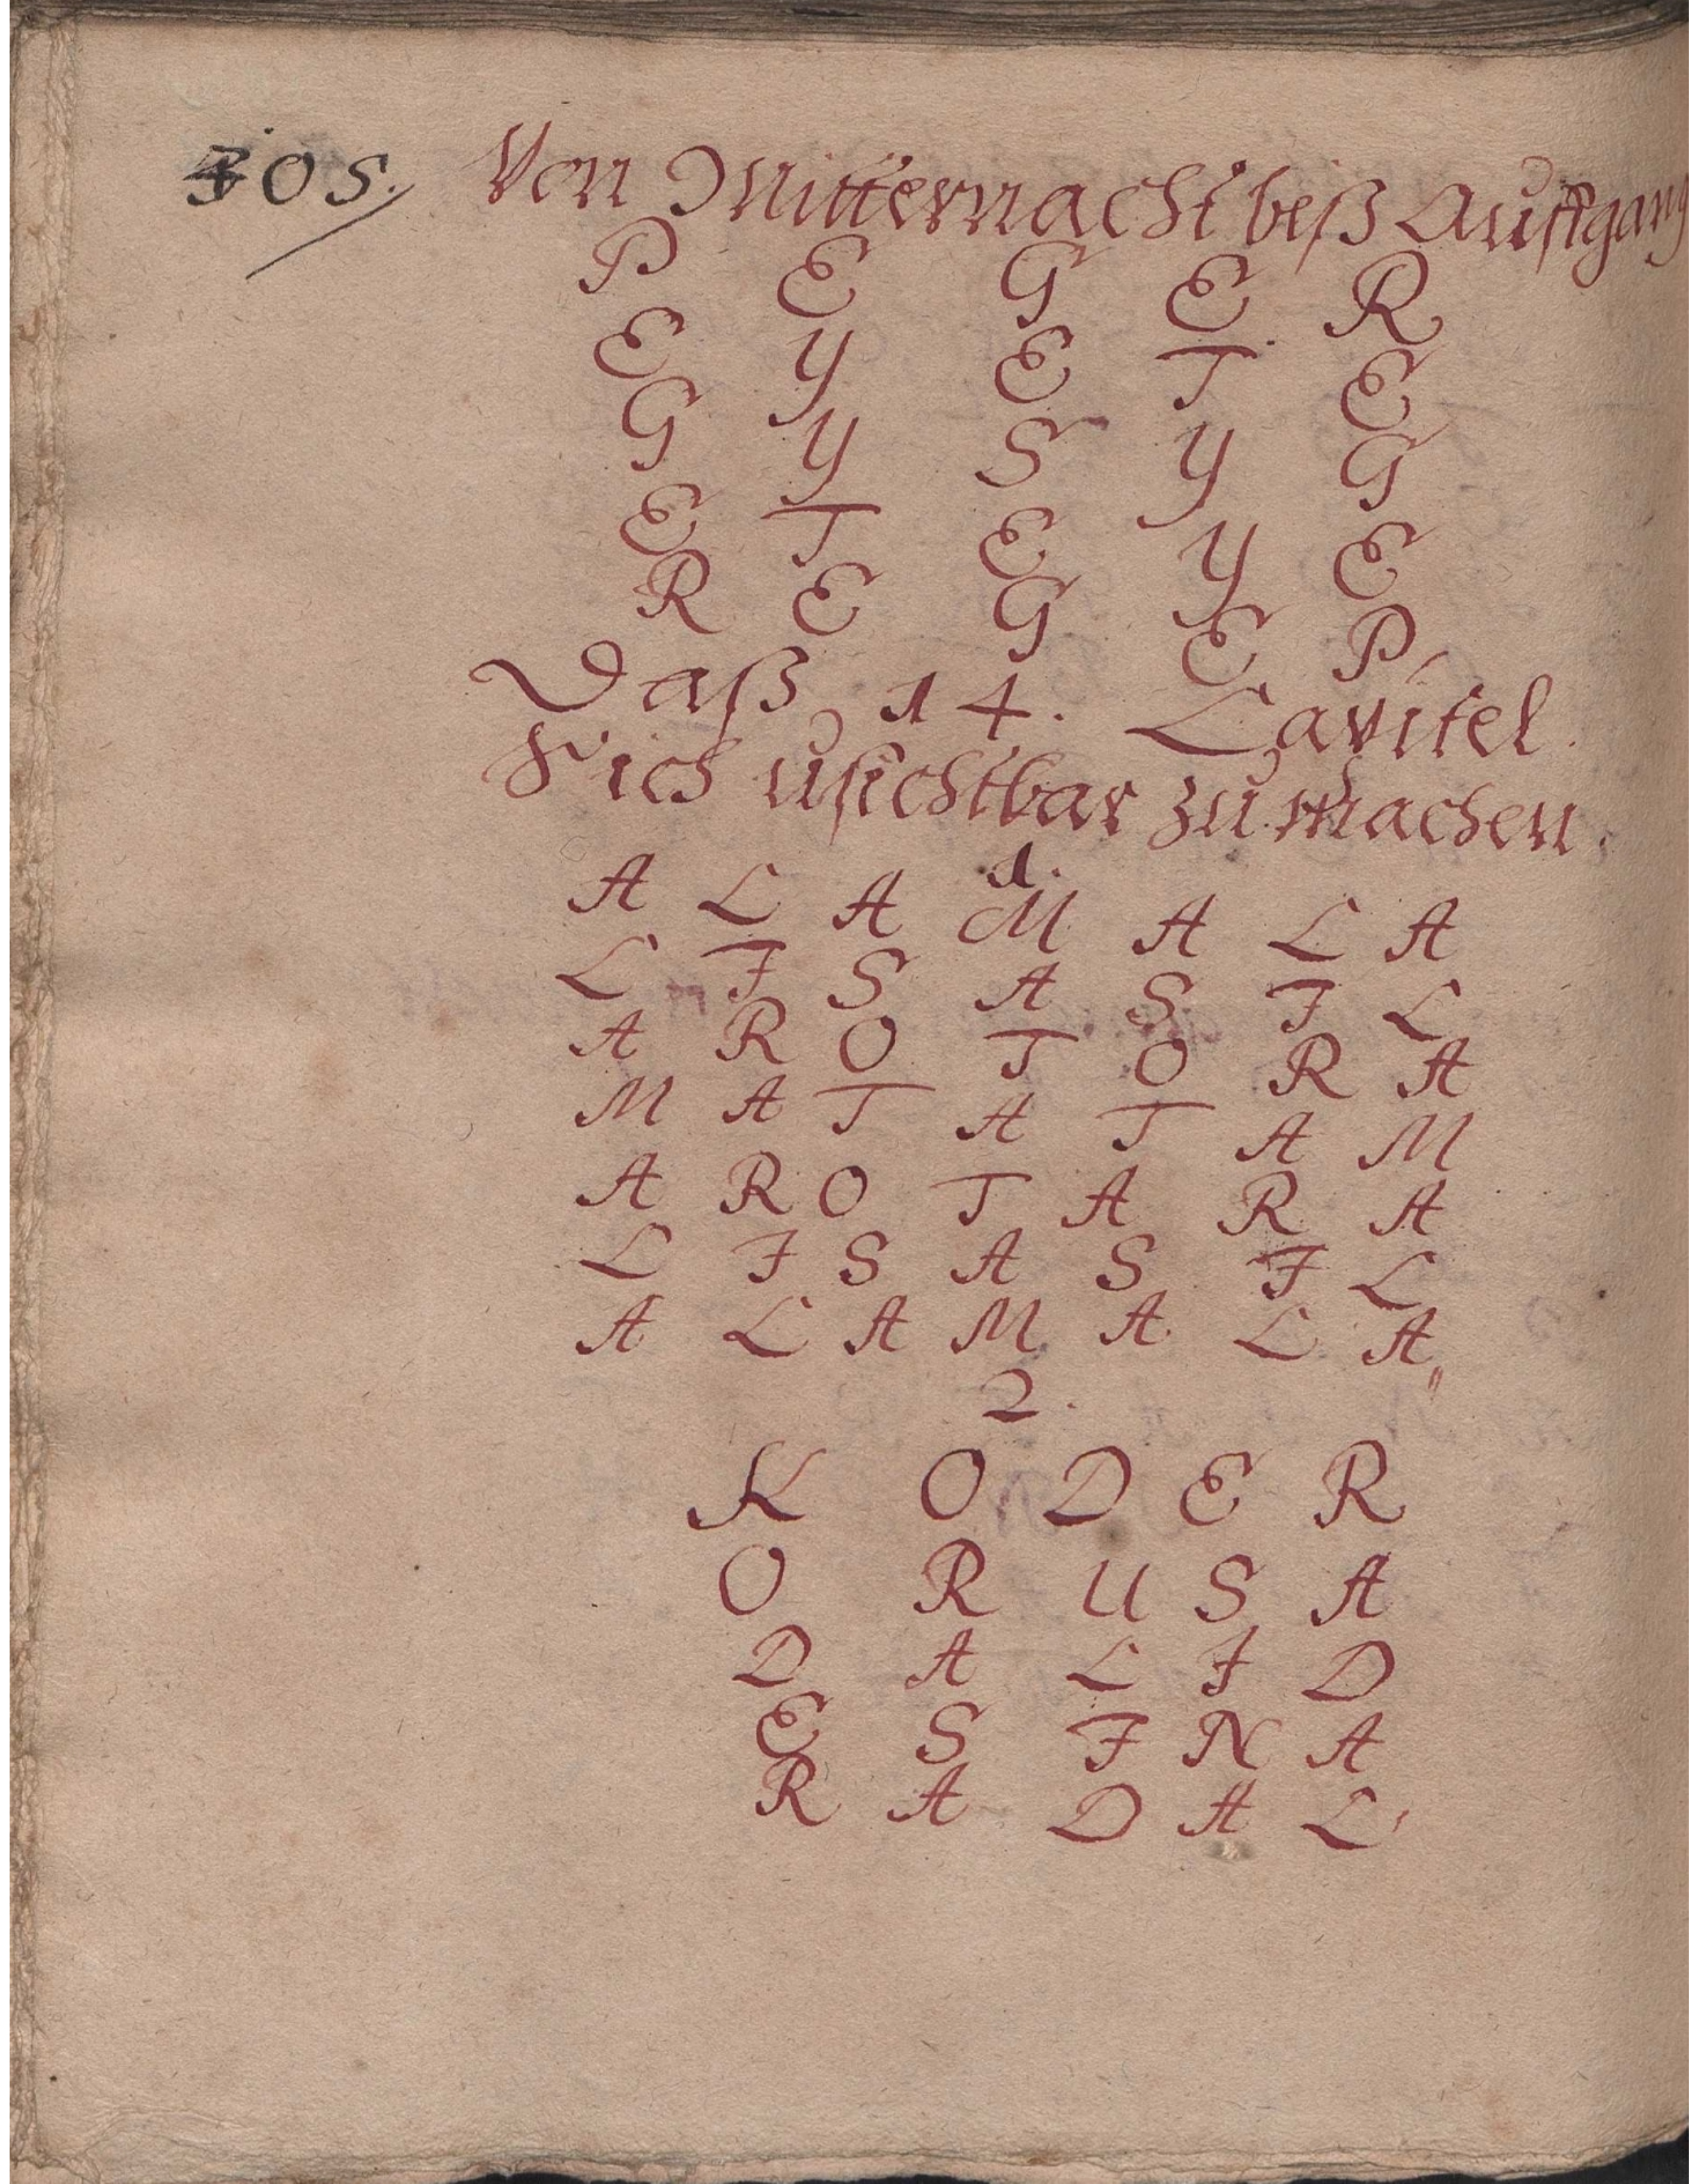 305. Von Mitternacht beß Auffgang
P E G E R
E Y E T E
G Y S Y G
E T E Y E
R E G E P
Daß 14. Capitel.
Sich usichtbar zu machen.
1.
A L A M A L A
L I S A S I L
A R O T O R A
M A T A T A M
A R O T A R A
L I S A S I L
A L A M A L A
2.
K O D E R
O R U S A
D A L I D
E S I N A
R A D A L